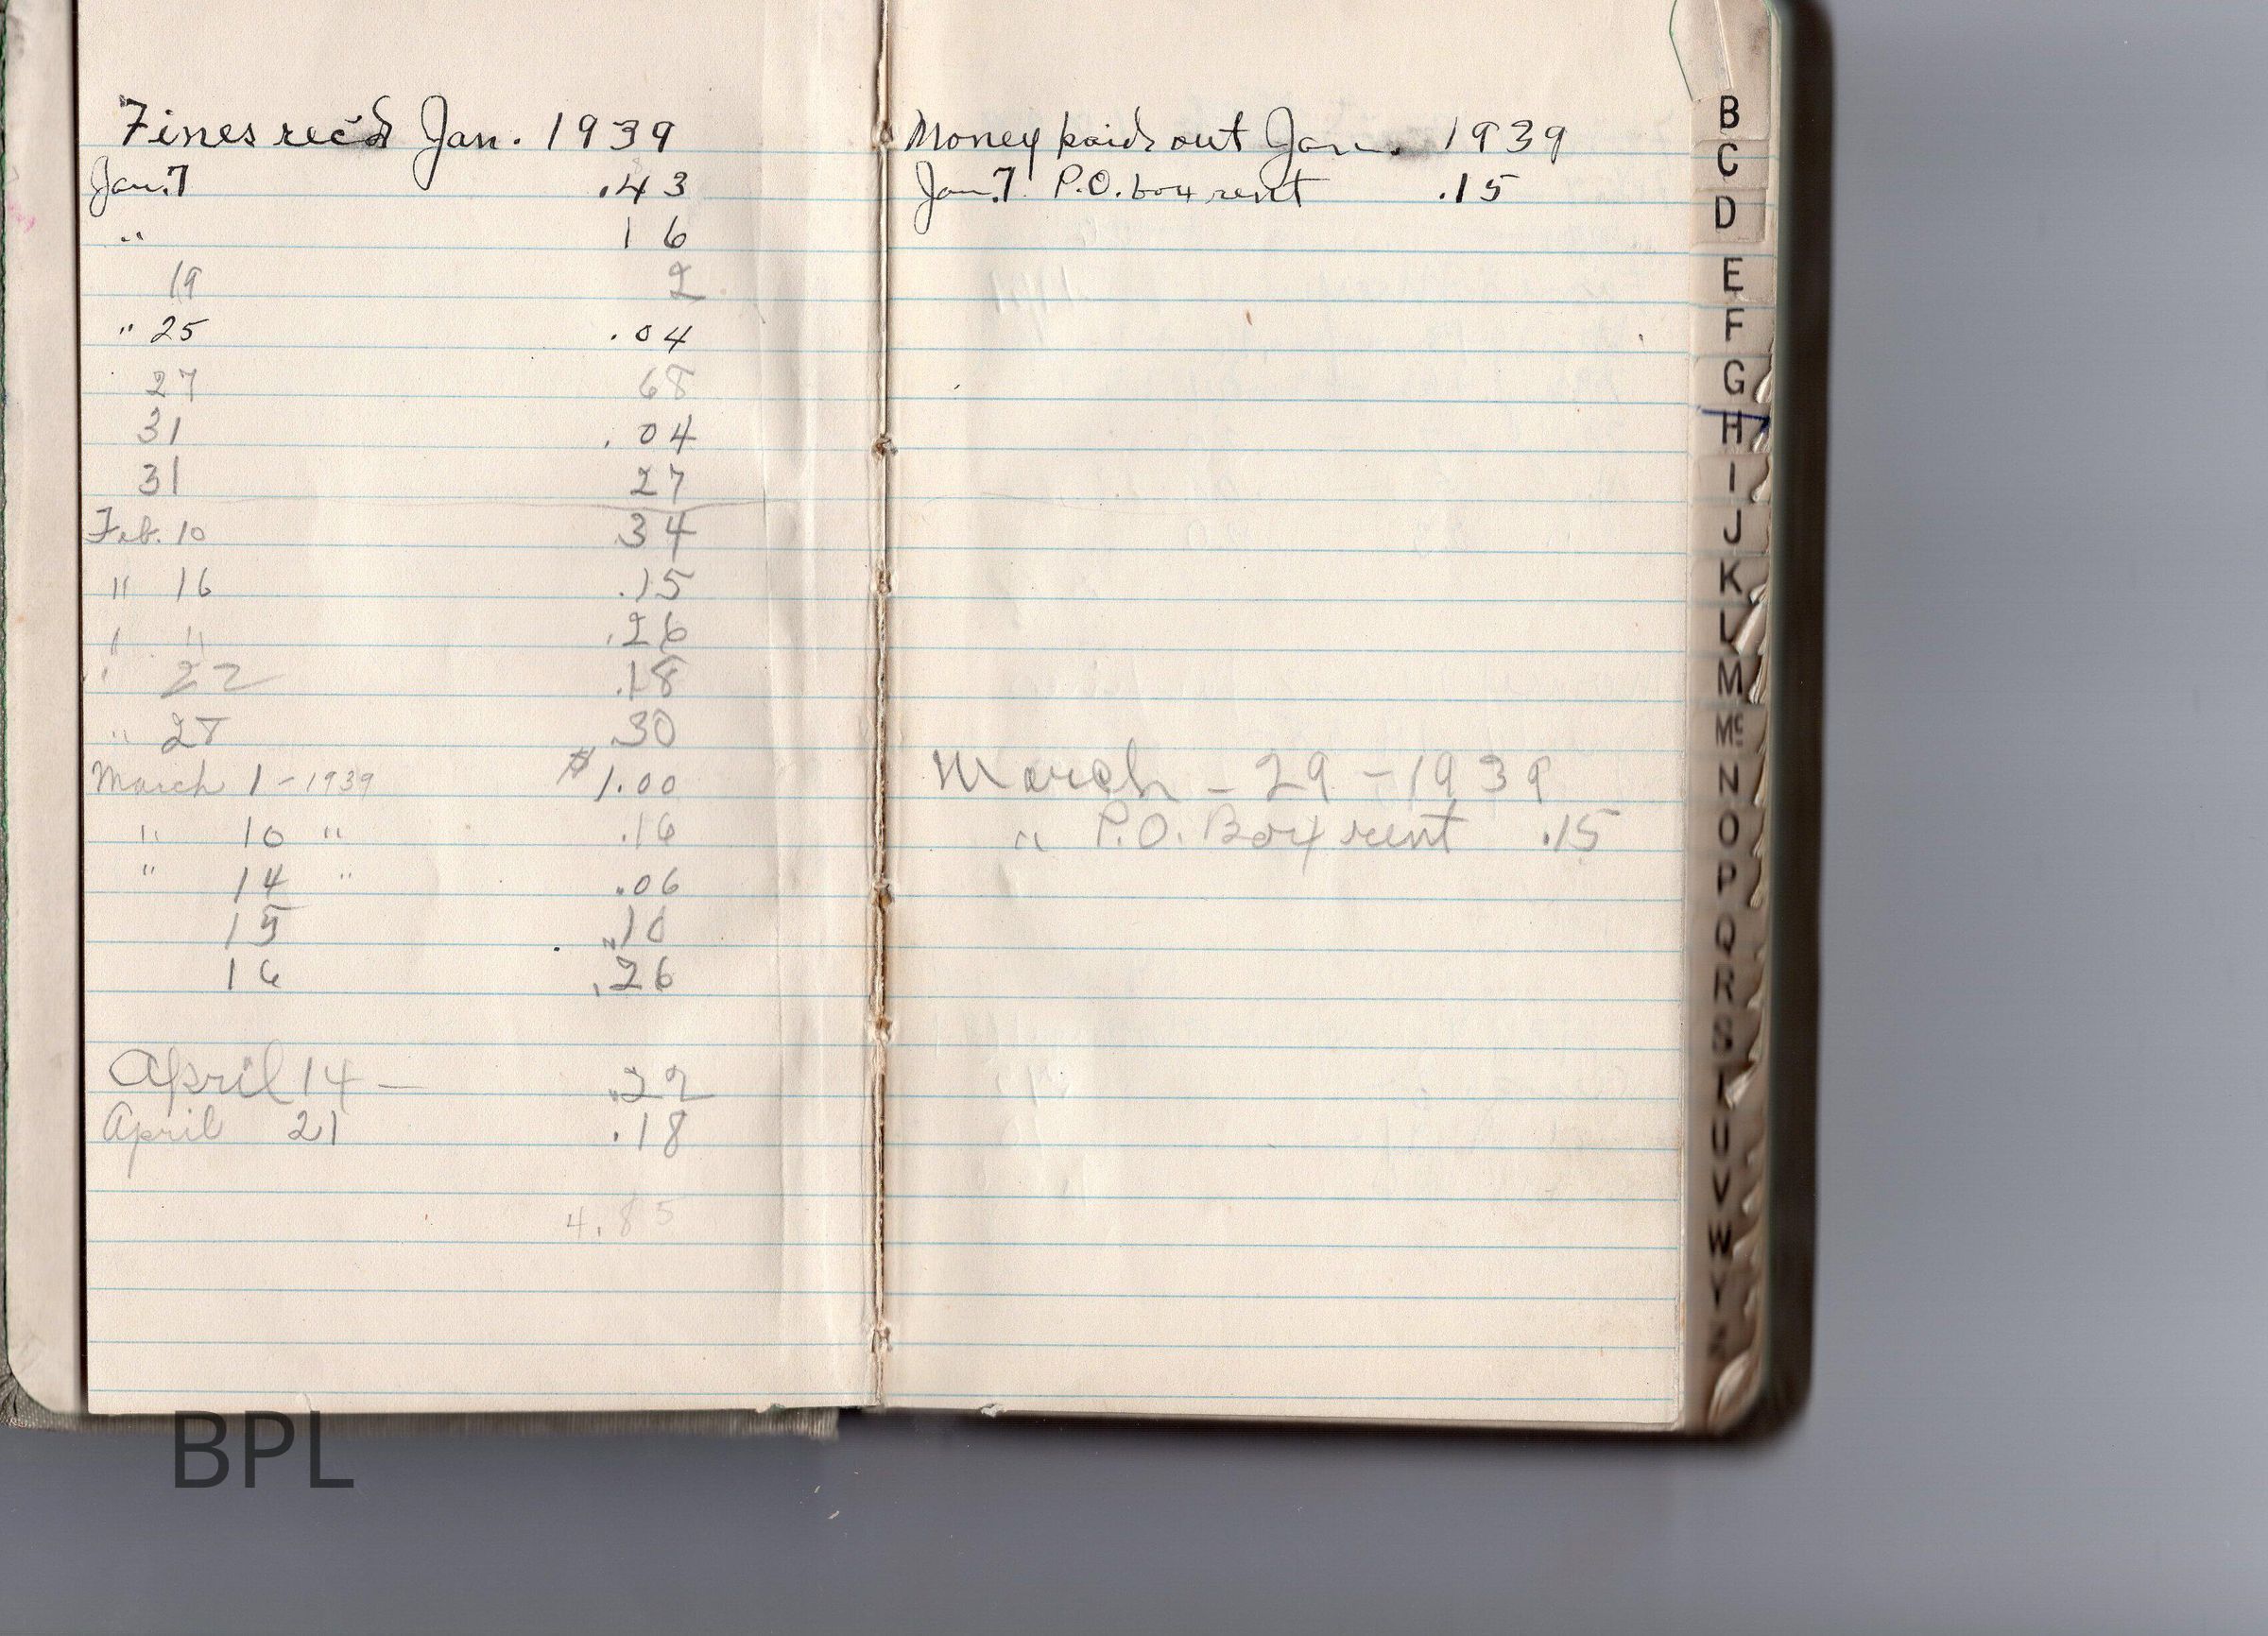 Fines rec'd Jan. 1939
Jan. 7 .43
" 16
19 2
" 25 .04
27 68
31 .04
31 27
Feb. 10 34
" 16 .15
" " .26
" 22 .18
" 28 .30
March 1 - 1939 $1.00
" 10 " .16
" 14 " .06
15 .10
16 .26
April 14 — .22
April 21 .18
4.85
Money paid out Jan. 1939
Jan. 7 P.O. box rent .15
March - 29 - 1939
" P.O. Box rent .15
B
C
D
E
F
G
H
I
J
K
L
M
Mc
N
O
P
Q
R
S
T
U
V
W
Y
Z
BPL